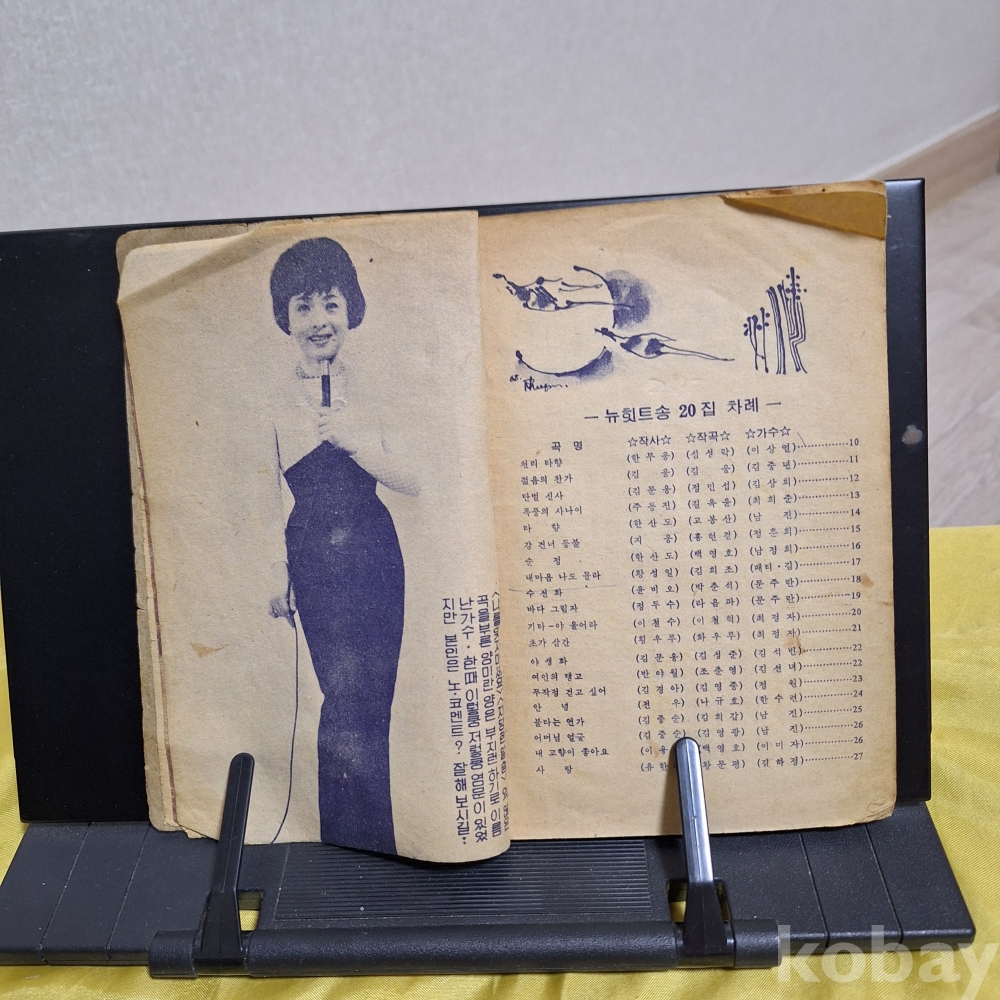 난가수·한때 이렇쿵 저렇쿵 염문이 있었
지만 본인은 노·코멘트? 잘해 보시길··
곡을부른 양미란 양은 부지런하기로 이름
—뉴힛트송 20 집 차례—
곡 명 ☆작사☆ ☆작곡☆ ☆가수☆
천리 타향 (한 무 웅) (심 성 락) (이 상 열)··············10
젊음의 찬가 (김 웅) (김 웅) (김 종 년)··············11
단벌 신사 (김 문 응) (정 민 섭) (김 상 희)··············12
폭풍의 사나이 (주 동 진) (길 옥 윤) (최 희 준)··············13
타 향 (한 산 도) (고 봉 산) (남 진)··············14
강 건너 등불 (지 웅) (홍 현 걸) (정 훈 희)··············15
순 정 (한 산 도) (백 영 호) (남 정 희)··············16
내마음 나도 몰라 (황 성 일) (김 희 조) (패티·김)··············17
수 선 화 (윤 비 오) (박 춘 석) (문 주 란)··············18
바다 그림자 (정 두 수) (라 음 파) (문 주 란)··············19
기타—야 울어라 (이 철 수) (이 철 혁) (최 정 자)··············20
초가 삼간 (황 우 루) (하 우 루) (최 정 자)··············21
야 생 화 (김 문 응) (김 성 준) (김 석 빈)··············22
여인의 탱고 (반 야 월) (조 춘 영) (김 선 녀)··············22
무작정 걷고 싶어 (김 경 아) (김 영 종) (정 원)··············23
안 녕 (전 우) (나 규 호) (한 수 련)··············24
불타는 연가 (김 중 순) (김 희 갑) (남 진)··············25
어머님 얼굴 (김 중 순) (김 영 광) (남 진)··············26
내 고향이 좋아요 (이 용 (백 영 호) (이 미 자)··············26
사 랑 (유 한 황 문 평) (김 하 정)··············27
kobay